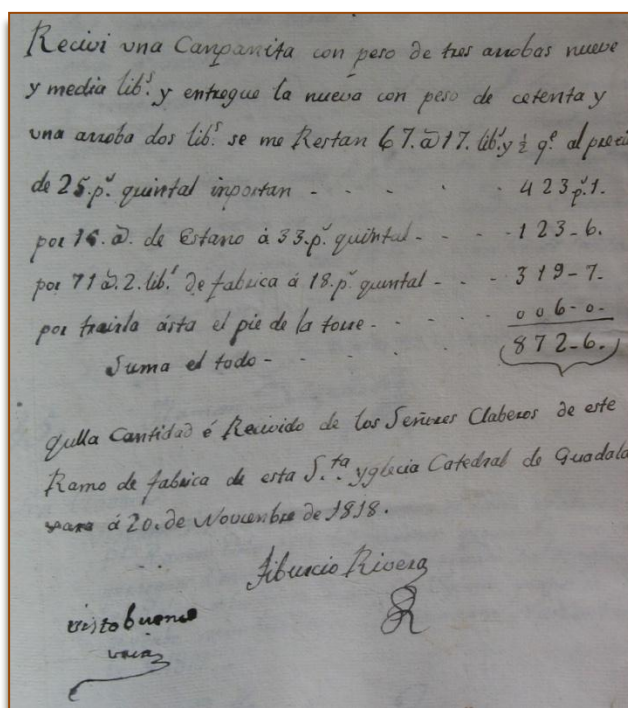 Recivi una Canpanita con peso de tres arrobas nueve
y media lib.s y entregue la nueva con peso de cetenta y
una arroba dos lib.s se me Restan 67.@17. lib.s y ½ q.e al preci
de 25.p.s quintal inportan - - - - 423p.s1.
por 15.@. de Estano á 33.p.s quintal - - - 123-6.
por 71@.2.lib.s de fabrica á 18.p.s quintal - - - 319-7.
por trairla ásta el pie de la torre - - - - 006-0-
Suma el todo - - - - - 872-6.
qulla Cantidad é Recivido de los Señores Claberos de este
Ramo de fabrica de esta S.ta yglecia Catedral de Guadala
xara á 20. de Novienbre de 1818.
Tiburcio Rivera
visto bueno